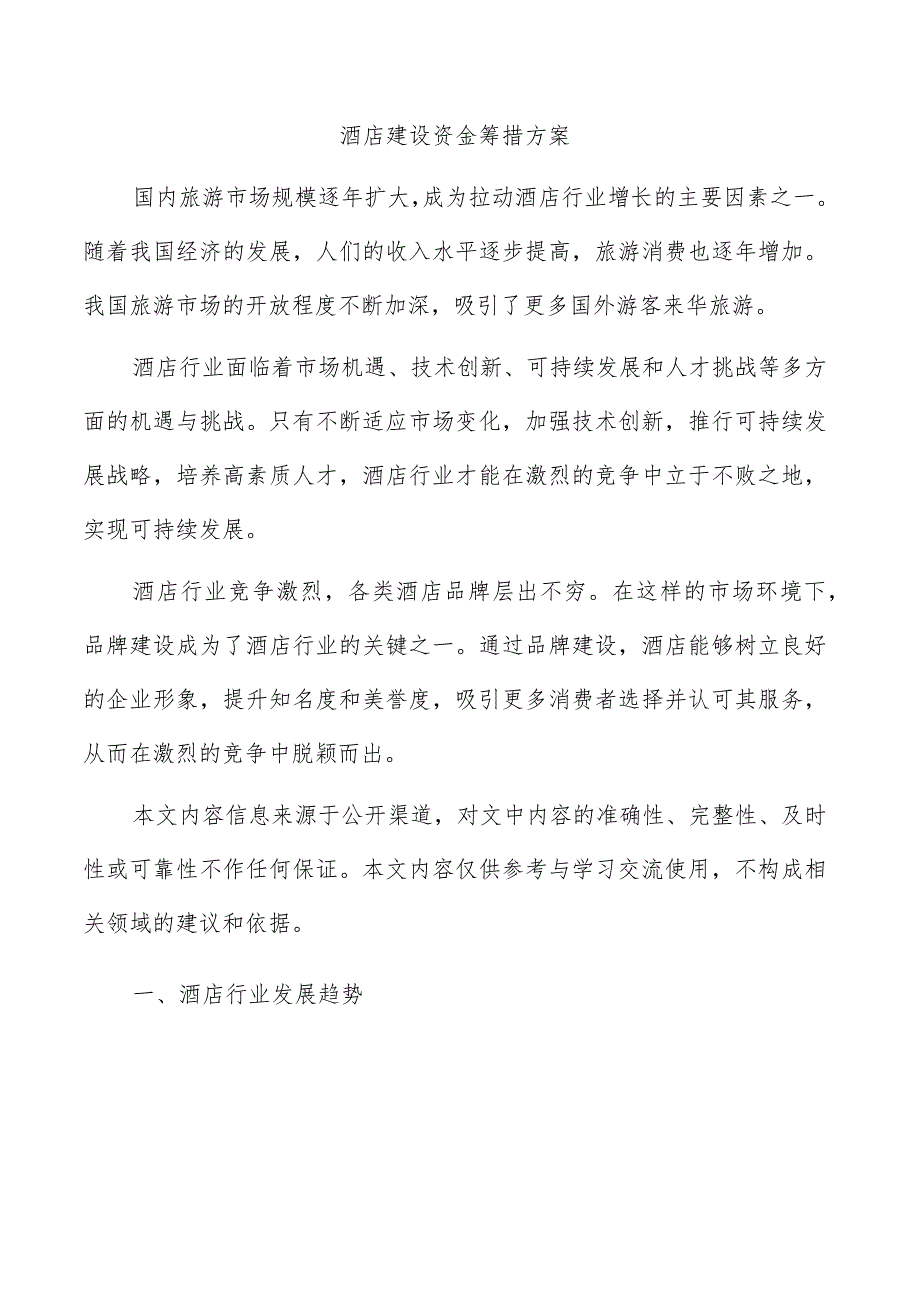 酒店建设资金筹措方案
国内旅游市场规模逐年扩大,成为拉动酒店行业增长的主要因素之一。
随着我国经济的发展，人们的收入水平逐步提高，旅游消费也逐年增加。
我国旅游市场的开放程度不断加深，吸引了更多国外游客来华旅游。
酒店行业面临着市场机遇、技术创新、可持续发展和人才挑战等多方
面的机遇与挑战。只有不断适应市场变化，加强技术创新，推行可持续发
展战略，培养高素质人才，酒店行业才能在激烈的竞争中立于不败之地，
实现可持续发展。
酒店行业竞争激烈，各类酒店品牌层出不穷。在这样的市场环境下，
品牌建设成为了酒店行业的关键之一。通过品牌建设，酒店能够树立良好
的企业形象，提升知名度和美誉度，吸引更多消费者选择并认可其服务，
从而在激烈的竞争中脱颖而出。
本文内容信息来源于公开渠道，对文中内容的准确性、完整性、及时
性或可靠性不作任何保证。本文内容仅供参考与学习交流使用，不构成相
关领域的建议和依据。
一、酒店行业发展趋势